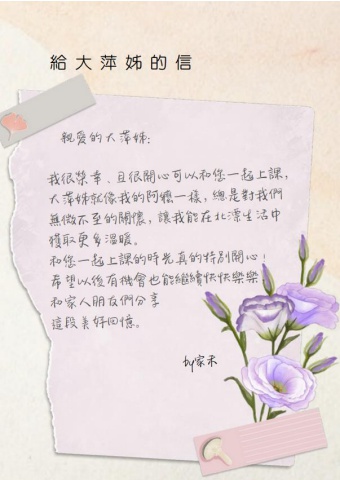 給大萍姊的信
親愛的大萍姊：
我很榮幸、且很開心可以和您一起上課，
大萍姊就像我的阿嬤一樣，總是對我們
無微不至的關懷，讓我能在北漂生活中
獲取更多溫暖。
和您一起上課的時光真的特別開心！
希望以後有機會也能繼續快快樂樂
和家人朋友們分享
這段美好回憶。
by家禾